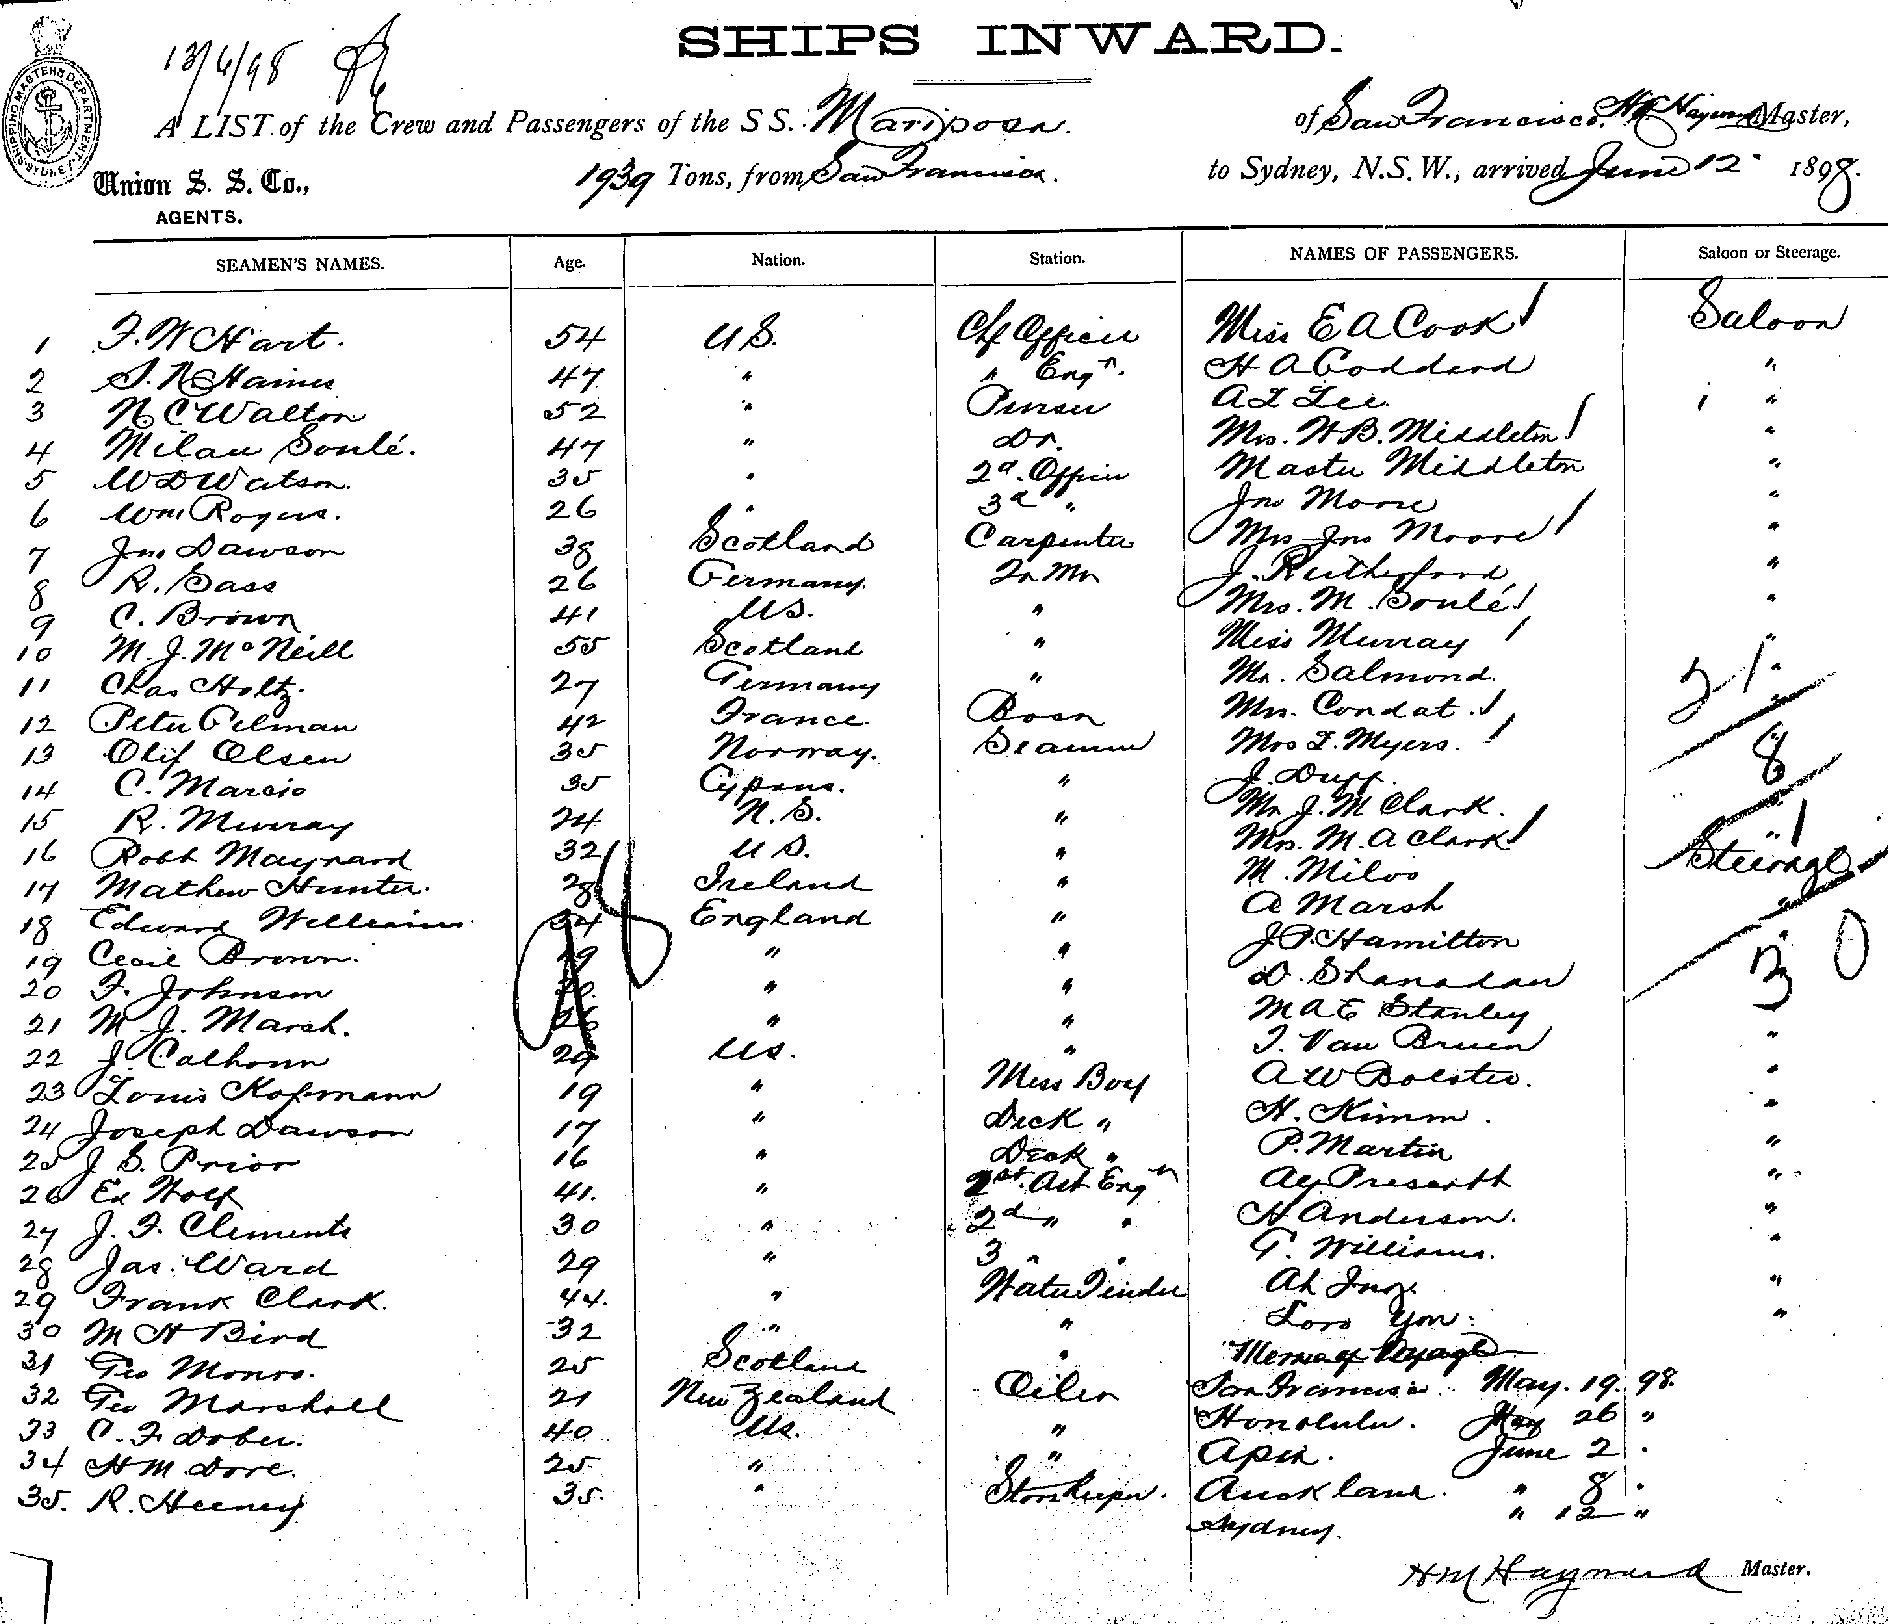 SHIPS INWARD.
13/6/98
A LIST of the Crew and Passengers of the SS. Mariposa. of San Francisco, HM Hayward Master,
Union S. S. Co., 1939 Tons, from San Francisco. to Sydney, N.S.W., arrived June 12 1898.
AGENTS.
SHIPPING MASTERS DEPARTMENT SYDNEY
SEAMEN'S NAMES. Age. Nation. Station. NAMES OF PASSENGERS. Saloon or Steerage.
1 F. W Hart. 54 U S. Chf Officer Miss E A Cook Saloon
2 Haines 47 " " Engr. H A Goddard "
3 N C Walton 52 " Purser A L Lee 1 "
4 Milau Soulé. 47 " Dr. Mrs. H B. Middleton "
5 W D Watson. 35 " 2d. Officer Master Middleton "
6 Wm Rogers. 26 " 3d " Jno Moore "
7 Jno Dawson 38 Scotland Carpenter Mrs Jno Moore "
8 R. Sass 26 Germany. Qr Mr J. Rutherford "
9 C. Brown 41 US. " Mrs. M. Soulé "
10 M. J. McNeill 55 Scotland " Miss Murray "
11 Chas Holtz. 27 Germany " Mr. Salmond. 21 "
12 Peter Pelman 42 France Bosn Mrs. Condat. "
13 Olif Olsen 35 Norway. Seamen Mrs L. Myers. 8
14 C. Marcio 35 Cyprus. " J. Duff.
15 R. Murray 24 N. S. " Mr J. M Clark.
16 Robt Maynard 32 U S. " Mrs. M. A Clark " 1
17 Mathew Hunter. 28 Ireland " M. Milos Steerage
18 Edward Williams 34 England " A Marsh "
19 Cecil Brown. 29 " " J P. Hamilton "
20 F. Johnson " " D. Shanahan 30
21 M. J. Marsh. 26 " " M A E Stanley
22 J. Calhoun 29 US. " J. Van Bruen "
23 Louis Kopmann 19 " Mess Boy A W Bolster. "
24 Joseph Dawson 17 " Deck " H. Kimm. "
25 J S. Prior 16 " Deck " P. Martin "
26 Ed Wolf 41. " 1st. Ast Engr Alf Presertt "
27 J. F. Clements 30 " 2d " " H Anderson. "
28 Jas. Ward 29 " 3 " " G. Williams. "
29 Frank Clark. 44. " Water Tender Ah Jug. "
30 M H Bird 32 " " Yon. "
31 Geo Monro. 25 Scotland " Voyage
32 Geo Marshall 21 New Zealand Oiler San Francisco May. 19. 98.
33 C. F Dober. 40 US. " Honolulu. May 26 "
34 H M Dore. 25 " " Apia. June 2 "
35. R. Heeney 35. " Storekeeper. Auckland. " 8 "
Sydney. " 12 "
98
HM Hayward Master.